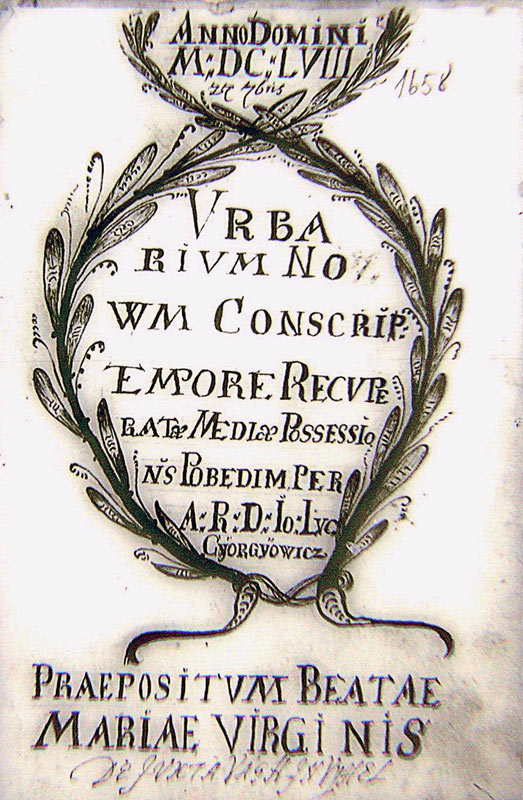 ANNO DOMINI
M:DC:LVIII
1658
VRBA
RIVM NO
WM CONSCRIP:
TEMPORE RECUPE
RATÆ MEDIÆ POSSESSIO
NIS POBEDIM PER
A:R:D:Io:Lyc
GYÖRGYÖWICZ
PRAEPOSITVM BEATAE
MARIAE VIRGINIS
DE JUXTA VAGH